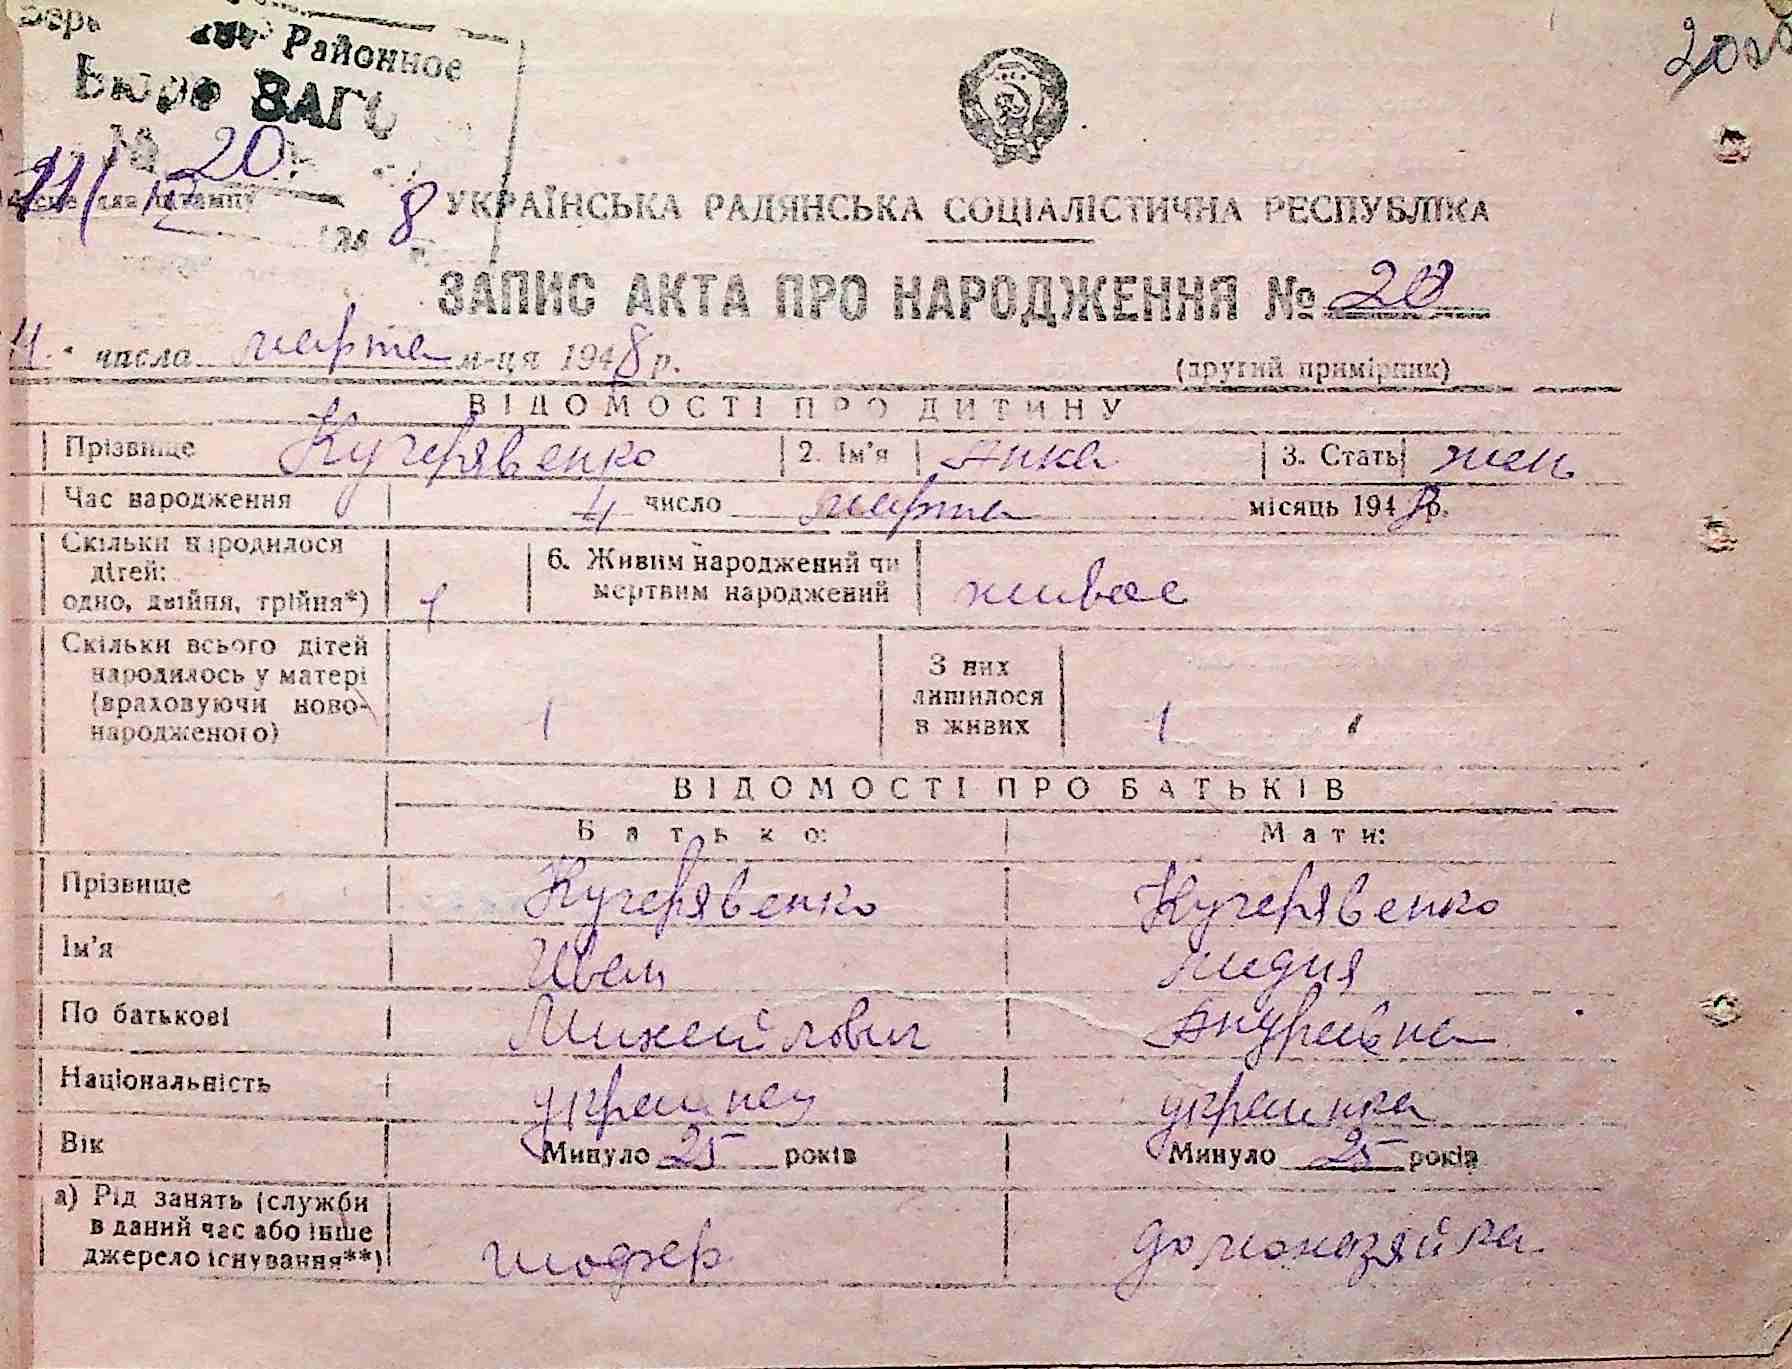 Районное
Бюро ЗАГС
№ 20
8
УКРАЇНСЬКА РАДЯНСЬКА СОЦІАЛІСТИЧНА РЕСПУБЛІКА
ЗАПИС АКТА ПРО НАРОДЖЕННЯ № 20
числа марта м-ця 1948 р.
(другий примірник)
ВІДОМОСТІ ПРО ДИТИНУ
Прізвище Кучерявенко 2. Ім'я Анна 3. Стать жен
Час народження 4 число марта місяць 1948 р.
Скільки народилося
дітей:
одно, двійня, трійня*) 1
6. Живим народжений чи
мертвим народжений живое
Скільки всього дітей
народилось у матері
(враховуючи ново-
народженого) 1
З них
лишилося
в живих 1
ВІДОМОСТІ ПРО БАТЬКІВ
Батько: Мати:
Прізвище Кучерявенко Кучерявенко
Ім'я Иван Лидия
По батькові Михайлович Андреевна
Національність украинец украинка
Вік Минуло 25 років Минуло 25 років
а) Рід занять (служби
в даний час або інше
джерело існування**) шофер домохазяйка